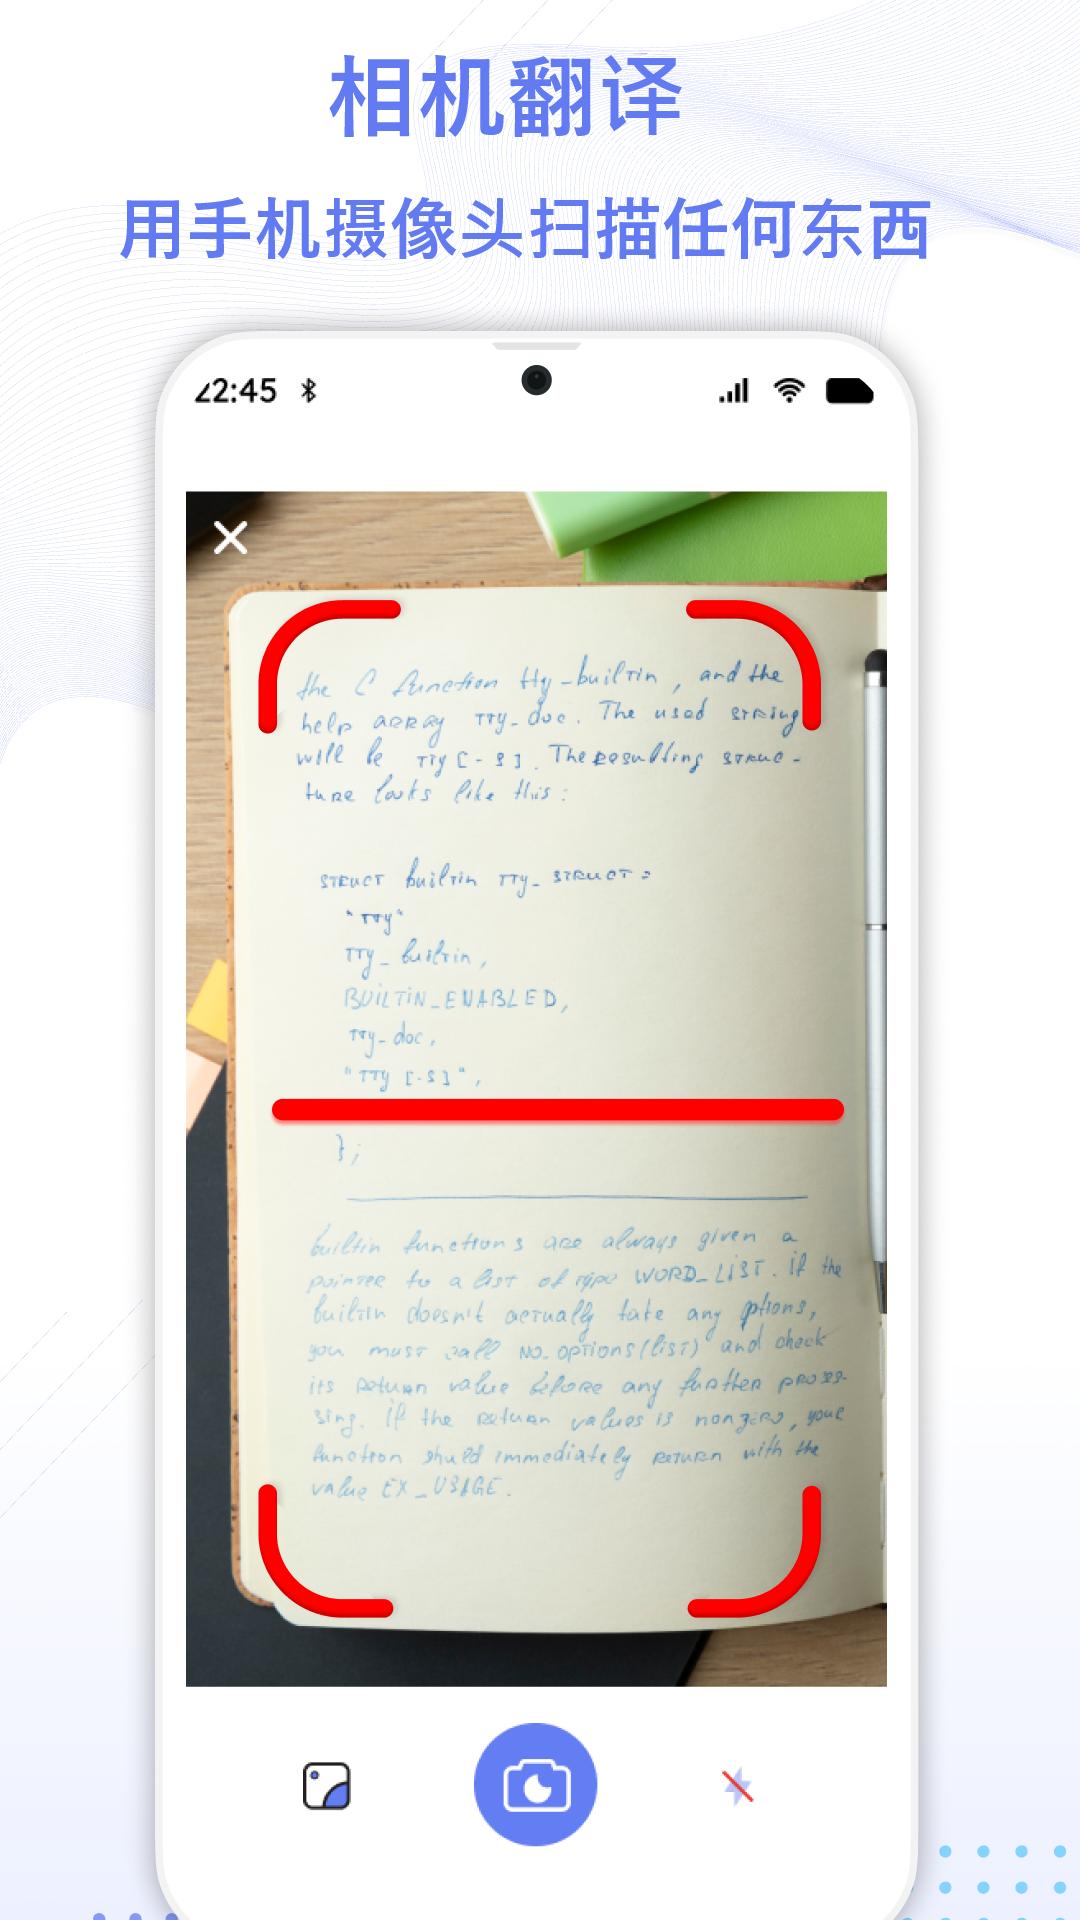 相机翻译
用手机摄像头扫描任何东西
22:45
the C function tty_builtin, and the
help array tty_doc. The used string
will be tty [-s]. The resulting struc-
ture looks like this:
struct builtin tty_struct =
"tty"
tty_builtin,
BUILTIN_ENABLED,
tty_doc,
"tty [-s]",
};
builtin functions are always given a
pointer to a list of type WORD_LIST. if the
builtin doesn't actually take any options,
you must call no_options(list) and check
its return value before any further proses-
sing. if the return values is nonzero, your
function should immediately return with the
value EX_USAGE.